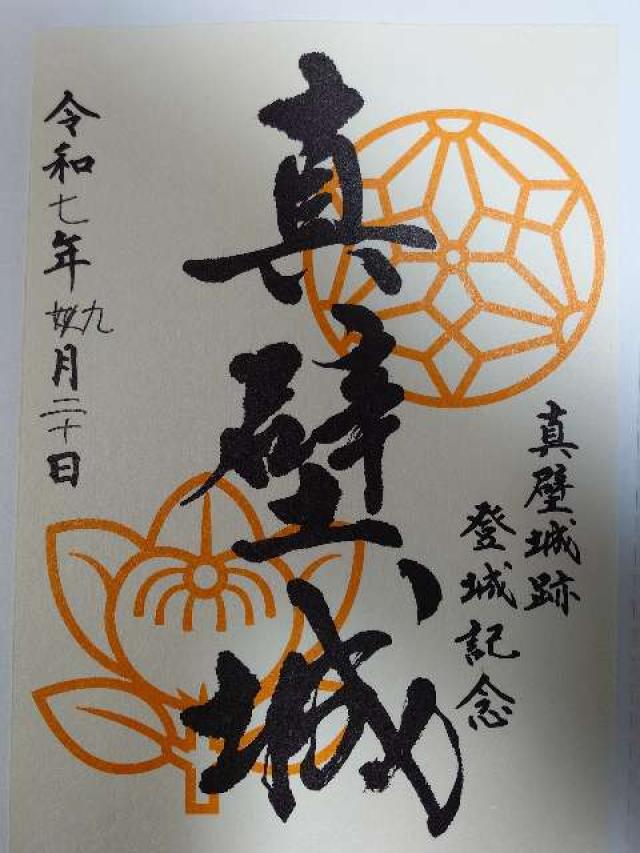 真壁城跡
登城記念
真壁城
令和七年九月二十日